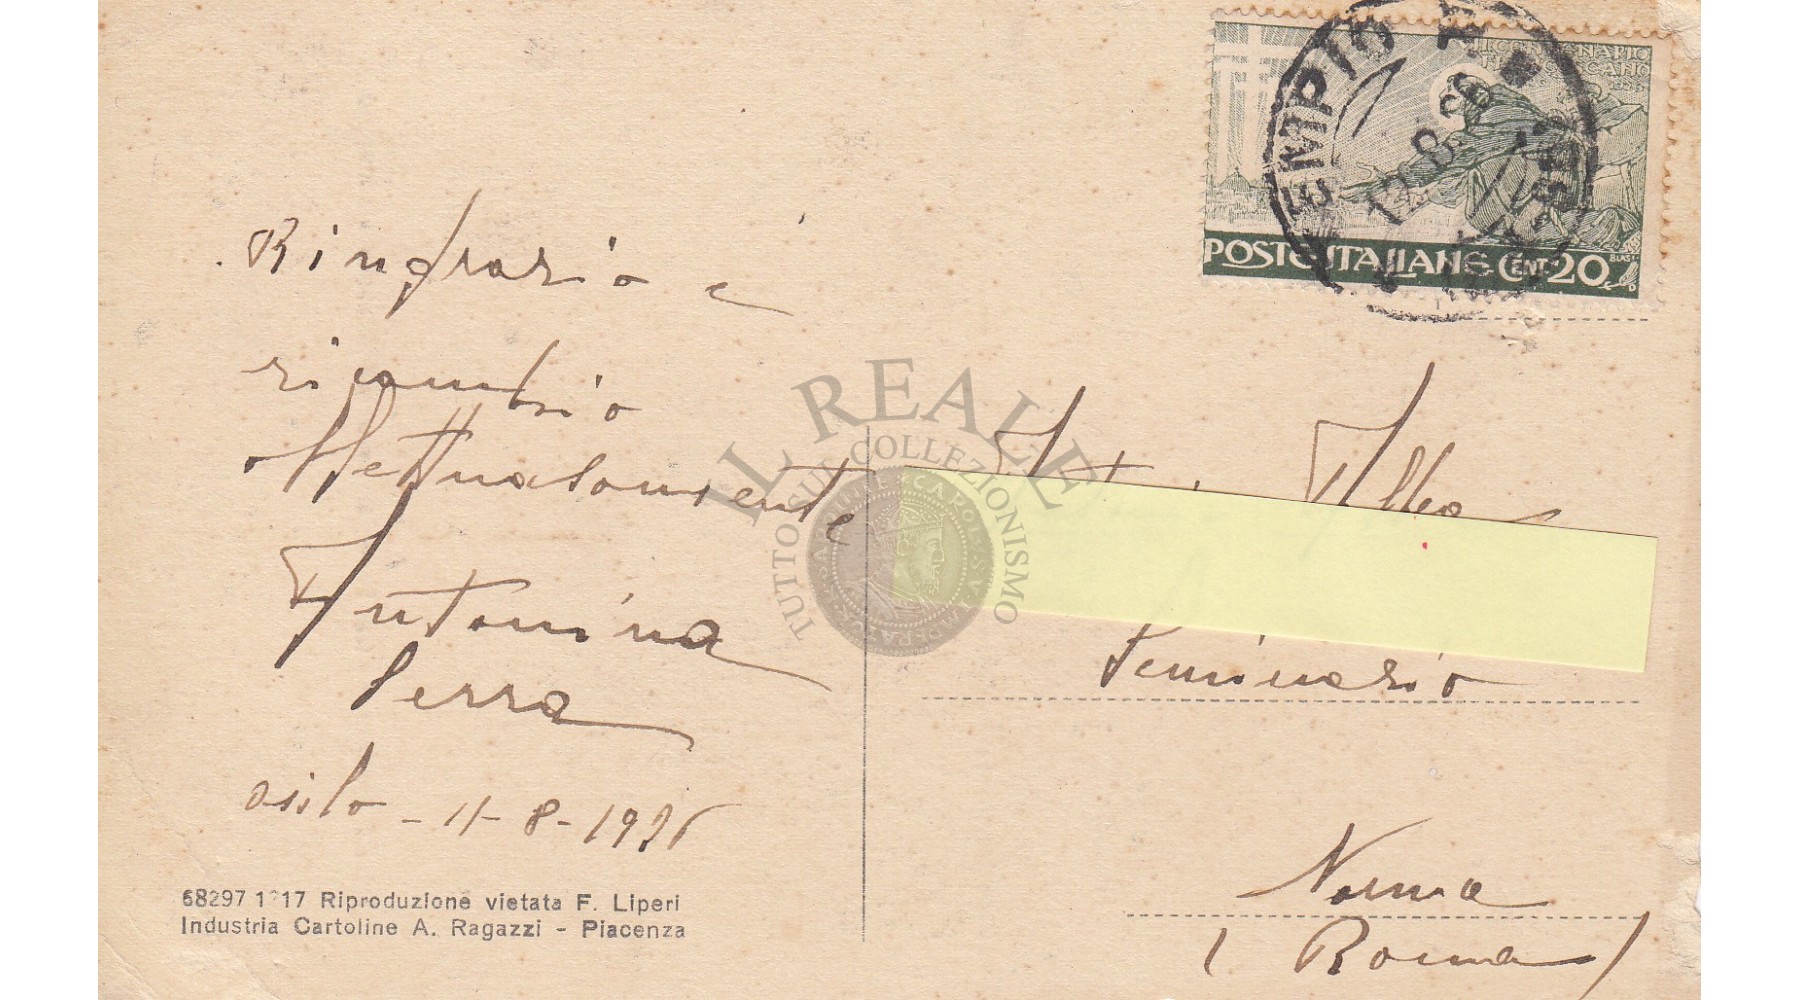 Ringrazio e
ricambio
affettuosamente
Antonina
Serra
Osilo - 11-8-1926
68297 1917 Riproduzione vietata F. Liperi
Industria Cartoline A. Ragazzi - Piacenza
TEMPIO
POSTE ITALIANE CENT 20
VII CENTENARIO
FRANCESCANO
IL REALE
TUTTO SUL COLLEZIONISMO
Seminario
Norma
(Roma)